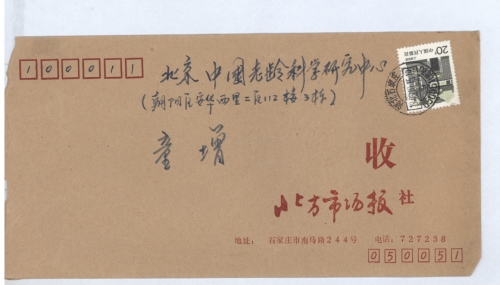 100011
北京 中国老龄科学研究中心
(朝阳区安华西里二区112楼3栋)
童增
收
北方市场报社
地址: 石家庄市南马路244号 电话: 727238
050051
20分
中国人民邮政